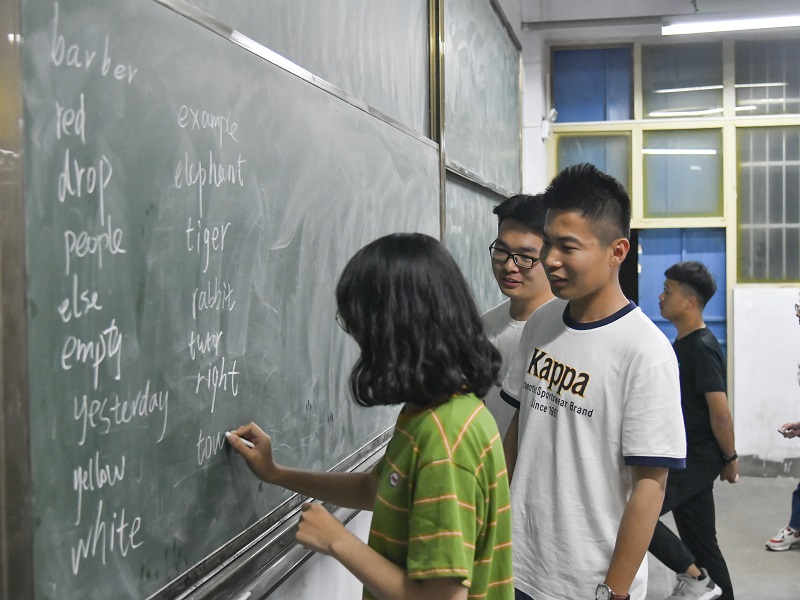 barber
red
drop
people
else
empty
yesterday
yellow
white
example
elephant
tiger
rabbit
right
Kappa
Sportswear Brand
Since